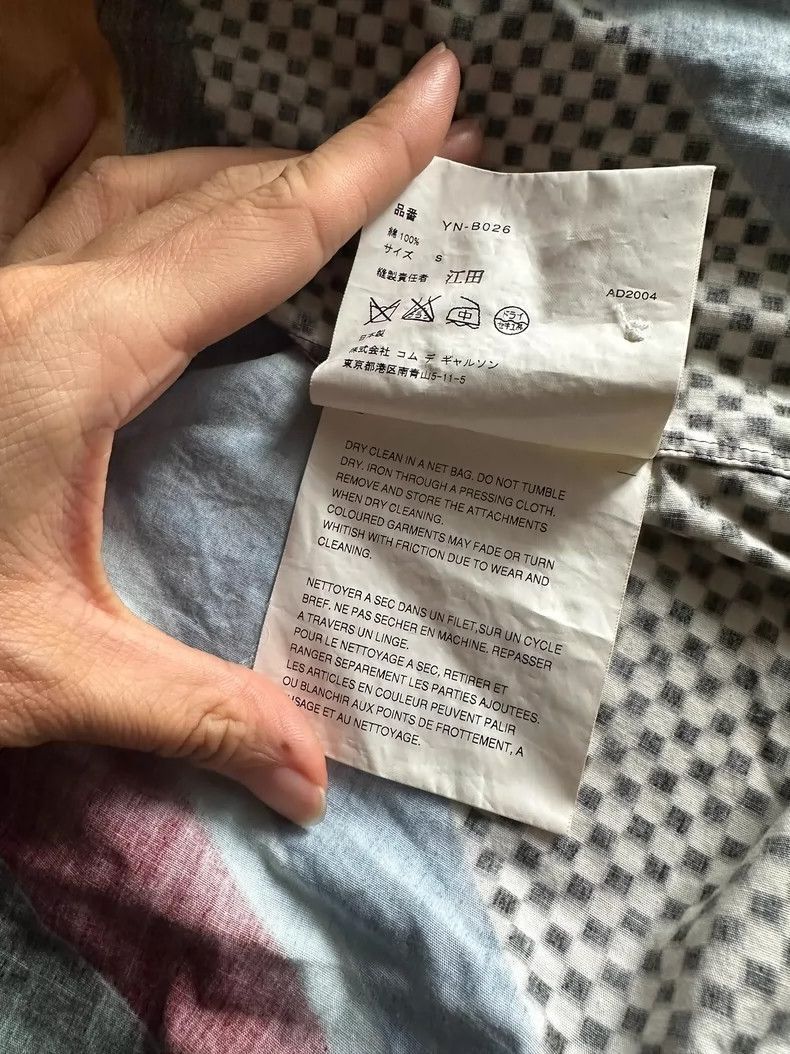 品番 YN-B026
綿100%
サイズ S
縫製責任者 江田
AD2004
ドライ
セキユ系
日本製
株式会社 コム デ ギャルソン
東京都港区南青山5-11-5
DRY CLEAN IN A NET BAG. DO NOT TUMBLE
DRY. IRON THROUGH A PRESSING CLOTH.
REMOVE AND STORE THE ATTACHMENTS
WHEN DRY CLEANING.
COLOURED GARMENTS MAY FADE OR TURN
WHITISH WITH FRICTION DUE TO WEAR AND
CLEANING.
NETTOYER A SEC DANS UN FILET,SUR UN CYCLE
BREF. NE PAS SECHER EN MACHINE. REPASSER
A TRAVERS UN LINGE.
POUR LE NETTOYAGE A SEC, RETIRER ET
RANGER SEPAREMENT LES PARTIES AJOUTEES.
LES ARTICLES EN COULEUR PEUVENT PALIR
OU BLANCHIR AUX POINTS DE FROTTEMENT, A
USAGE ET AU NETTOYAGE.